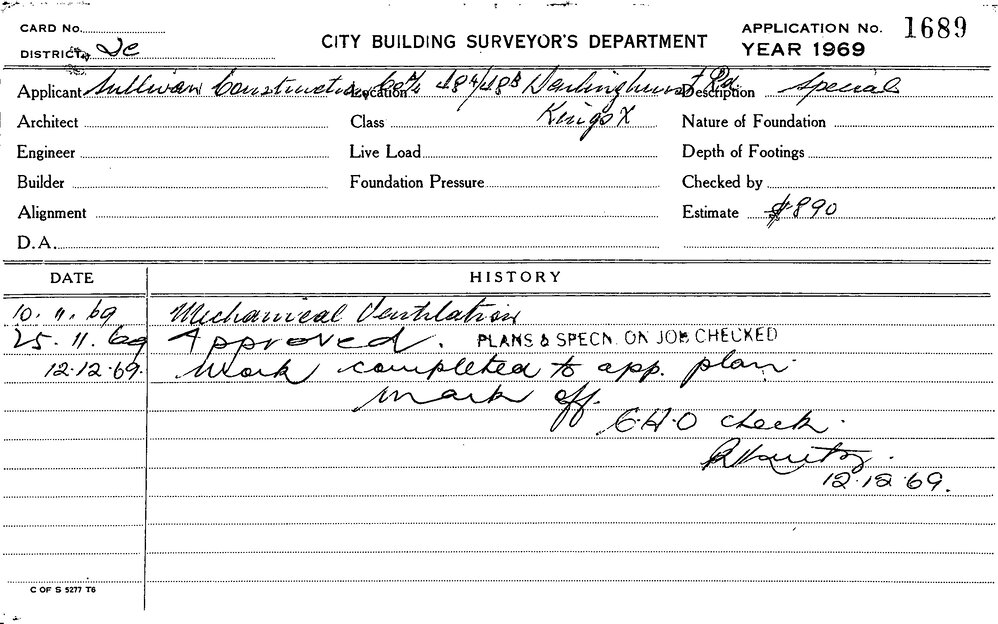 CARD No.
DISTRICT 2c
CITY BUILDING SURVEYOR'S DEPARTMENT
APPLICATION No. 1689
YEAR 1969
Applicant Sullivan Constructions Location 48A/48B Darlinghurst Rd Description Special
Architect Class Kings X Nature of Foundation
Engineer Live Load Depth of Footings
Builder Foundation Pressure Checked by
Alignment Estimate $890
D.A.
DATE HISTORY
10.11.69 Mechanical Ventilation
25.11.69 Approved. PLANS & SPECN. ON JOB CHECKED
12.12.69. Work completed to app. plan.
mark off.
C.H.O check.
12.12.69.
C OF S 5277 T6